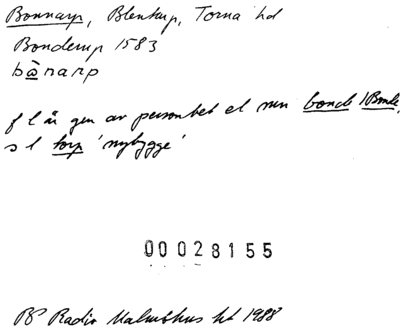 Bonnarp, Blentarp, Torna hd
Bonderup 1583
bånarp
f l är gen av personbet el mn bonde / Bonde,
s l torp 'nybygge'
00028155
BP Radio Malmöhus ht 1988